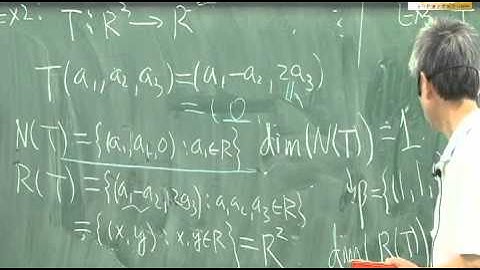 ex2: T: R³ → R²
T(a₁, a₂, a₃) = (a₁-a₂, 2a₃)
= ( 0
N(T) = {(a₁, a₁, 0) : a₁∈R} dim(N(T)) = 1
R(T) = {(a₁-a₂, 2a₃) : a₁, a₂, a₃∈R} β = {(1, 1,
= {(x, y) : x, y∈R} = R² dim( R(T)